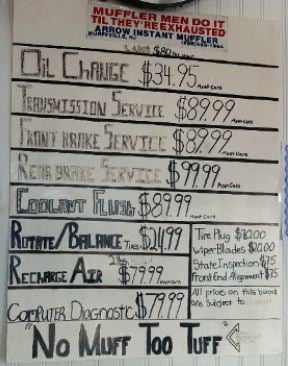 MUFFLER MEN DO IT
TIL THEY'RE EXHAUSTED
ARROW INSTANT MUFFLER
LABOR $80
OIL CHANGE $34.95 Most Cars
TRANSMISSION SERVICE $89.99 Most Cars
FRONT BRAKE SERVICE $89.99 Most Cars
REAR BRAKE SERVICE $99.99 Most Cars
COOLANT FLUSH $89.99 Most Cars
ROTATE/BALANCE Tires $24.99
RECHARGE AIR $79.99 Most Cars
COMPUTER DIAGNOSTIC $79.99
Tire Plug
Wiper Blades $20.00
State Inspection $75
Front End Alignment $75
All prices on this board
are subject to change
"NO MUFF TOO TUFF"